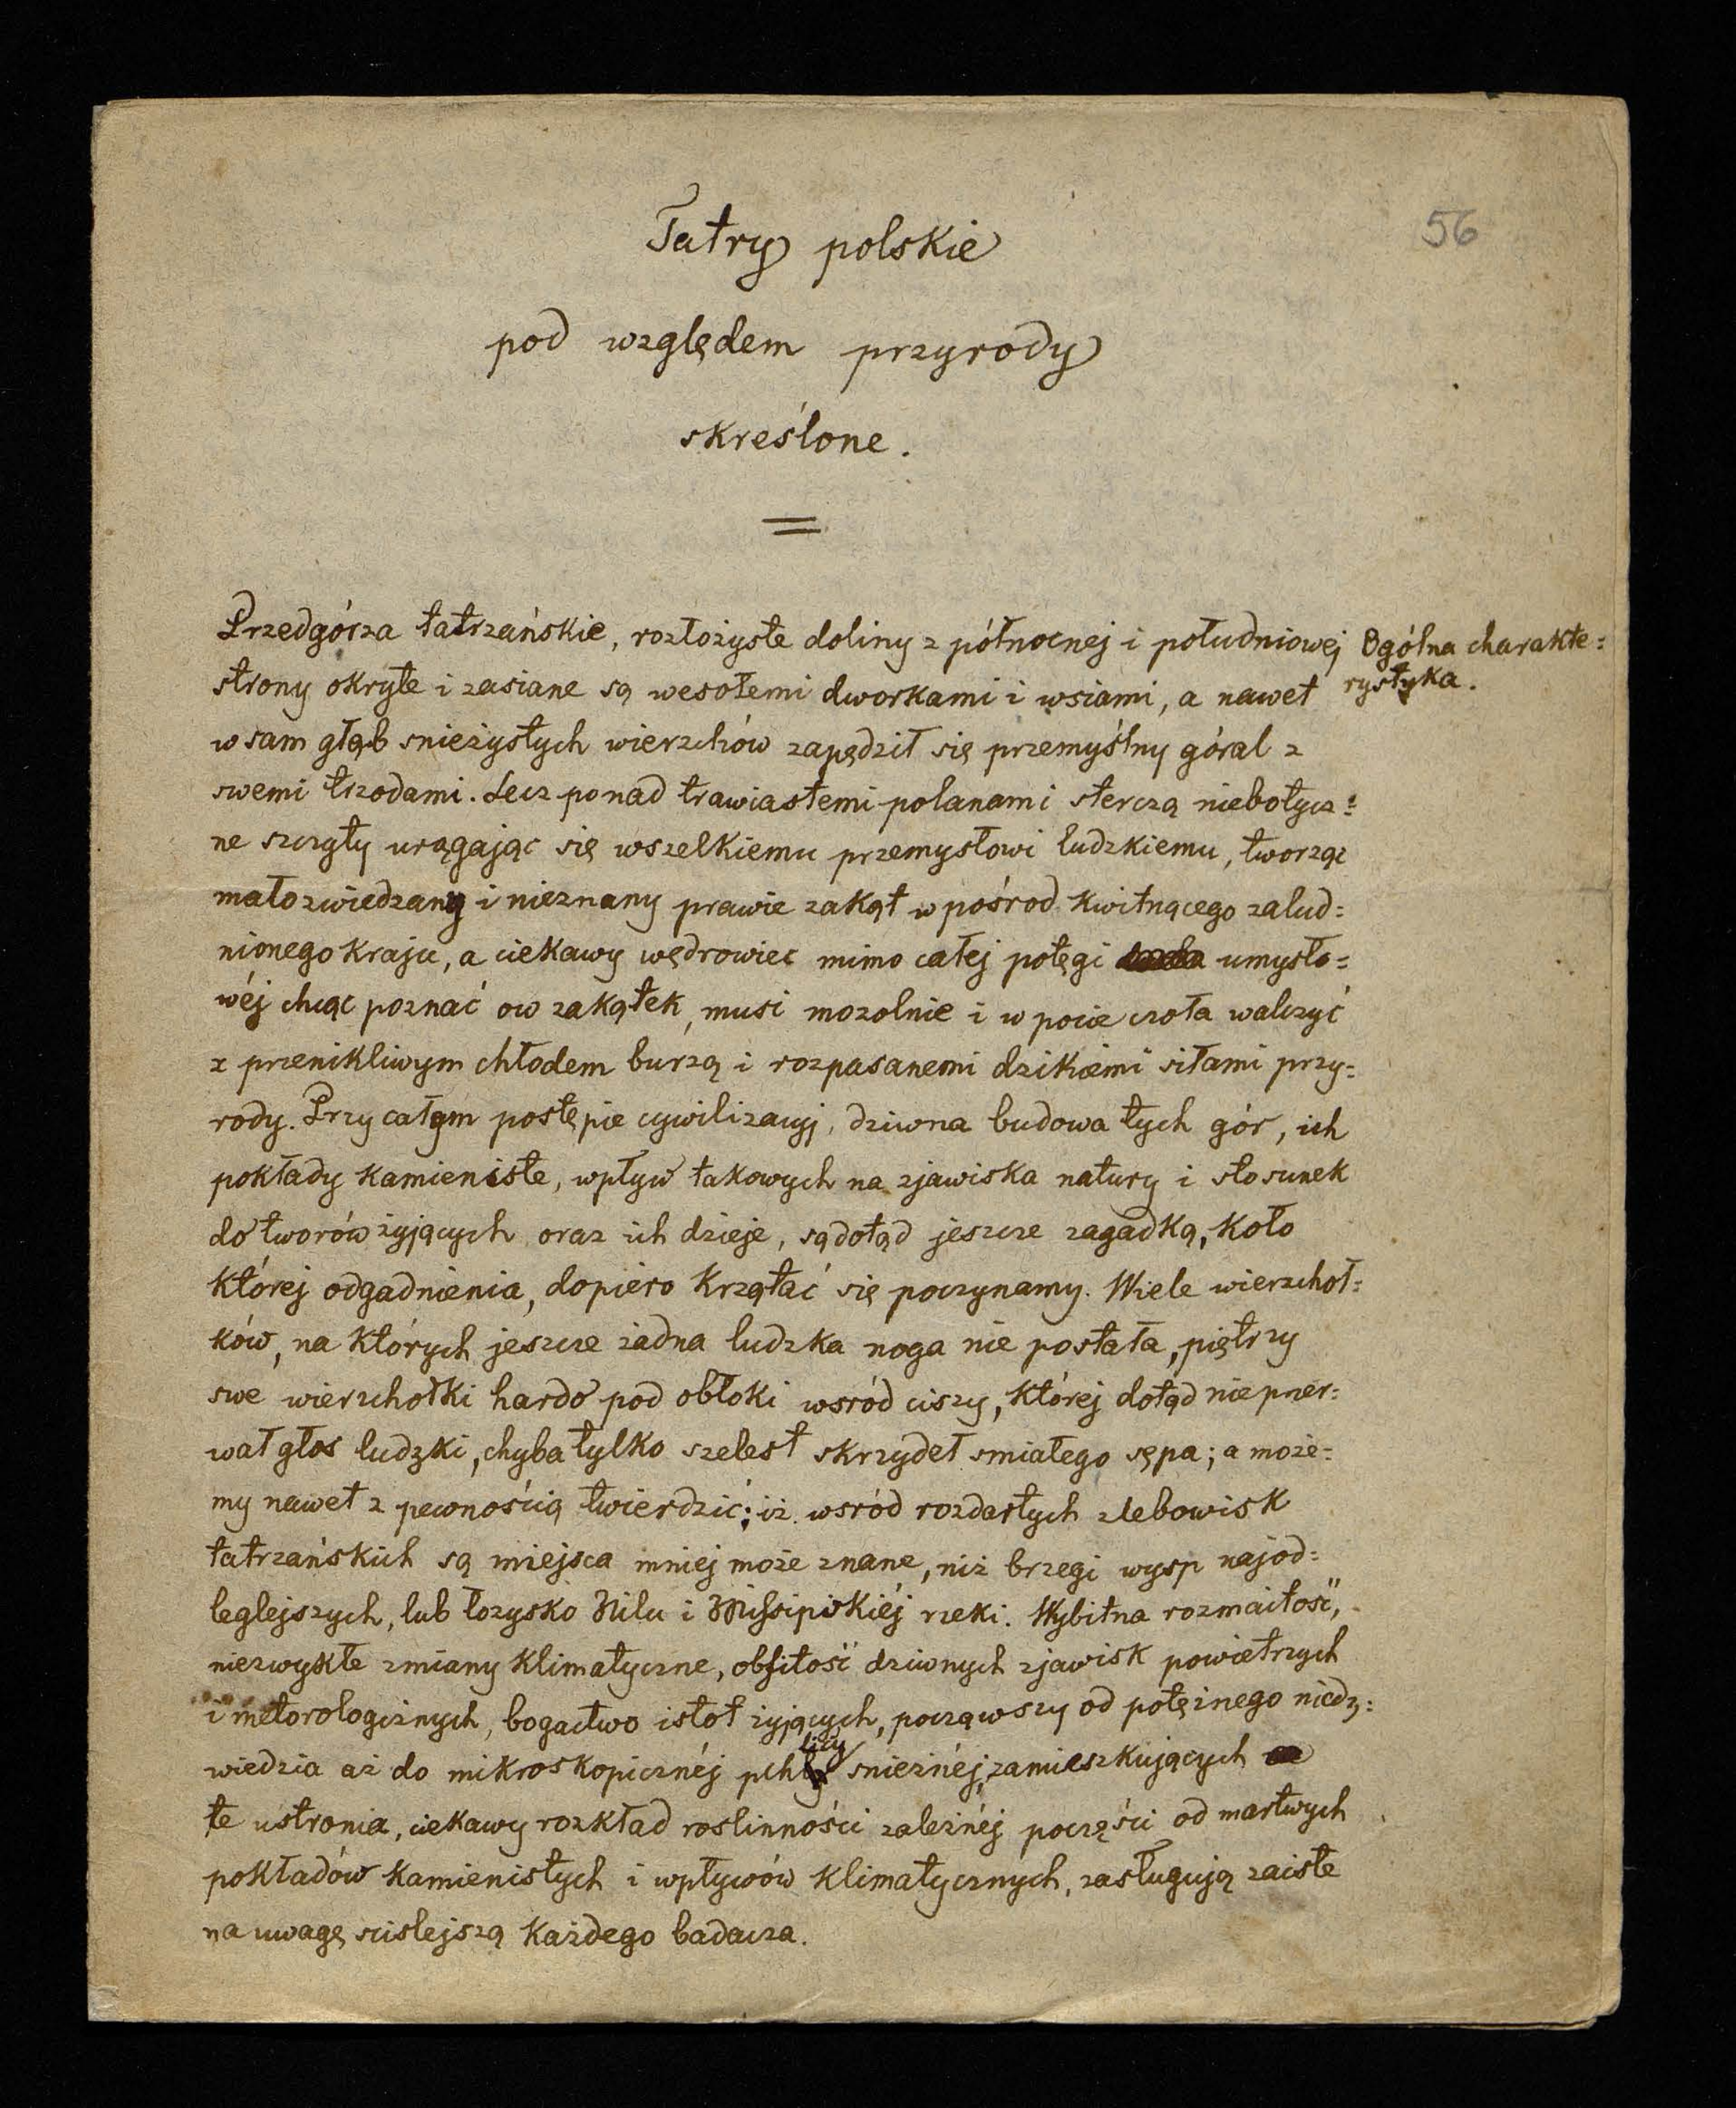 56
Tatry polskie
pod względem przyrody
skreślone.
Przedgórza tatrzańskie, rozłożyste doliny z północnej i południowej
strony okryte i zasiane są wesołemi dworkami i wsiami, a nawet
w sam głąb snieżystych wierzchów zapędził się przemyślny góral z
swemi trzodami. Lecz ponad trawiastemi polanami sterczą niebotycz=
ne szczyty urągając się wszelkiemu przemysłowi ludzkiemu, tworząc
mało zwiedzany i nieznany prawie zakąt w pośrod kwitnącego zalud=
nionego kraju, a ciekawy wędrowiec mimo całej potęgi umysło=
wéj chcąc poznać ow zakątek, musi mozolnie i w pocie czoła walczyć
z przenikliwym chłodem burzą i rozpasanemi dzikiemi siłami przy=
rody. Przy całym postępie cywilizacyj, dziwna budowa tych gór, ich
pokłady kamieniste, wpływ takowych na zjawiska natury i stosunek
do tworów żyjących oraz ich dzieje, są dotąd jeszcze zagadką, koło
której odgadnienia, dopiero krzątać się poczynamy. Wiele wierzchoł=
ków, na których jeszcze żadna ludzka noga nie postała, piętrzy
swe wierzchołki hardo pod obłoki wsród ciszy, której dotąd nie przer=
wał głos ludzki, chyba tylko szelest skrzydeł smiałego sępa; a może=
my nawet z pewnością twierdzić; iż wsród rozdartych zlebowisk
tatrzańskich są miejsca mniej może znane, niż brzegi wysp najod=
leglejszych, lub łozysko Nilu i Missipiskiéj rzeki. Wybitna rozmaitość,
niezwykłe zmiany klimatyczne, obfitość dziwnych zjawisk powietrzych
i metorologicznych, bogactwo istot żyjących, począwszy od potężnego niedz=
wiedzia aż do mikroskopicznéj pchlicy snieżnéj, zamieszkujących
te ustronia, ciekawy rozkład roslinności zależnéj poczęści od martwych
pokładów kamienistych i wpływów klimatycznych, zasługują zaiste
na uwagę scislejszą każdego badacza.
Ogólna charakte=
rystyka.